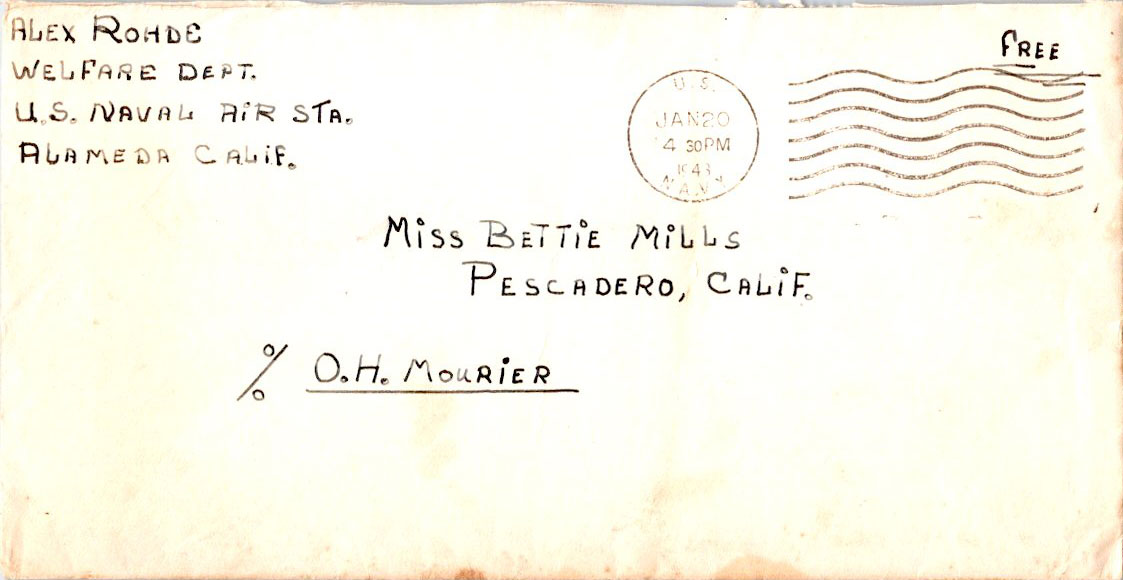 ALEX ROHDE
WELFARE DEPT.
U.S. NAVAL AIR STA.
ALAMEDA CALIF.
FREE
U.S.
JAN 20
4 30 PM
1943
NAVY
MISS BETTIE MILLS
PESCADERO, CALIF.
% O.H. MOURIER